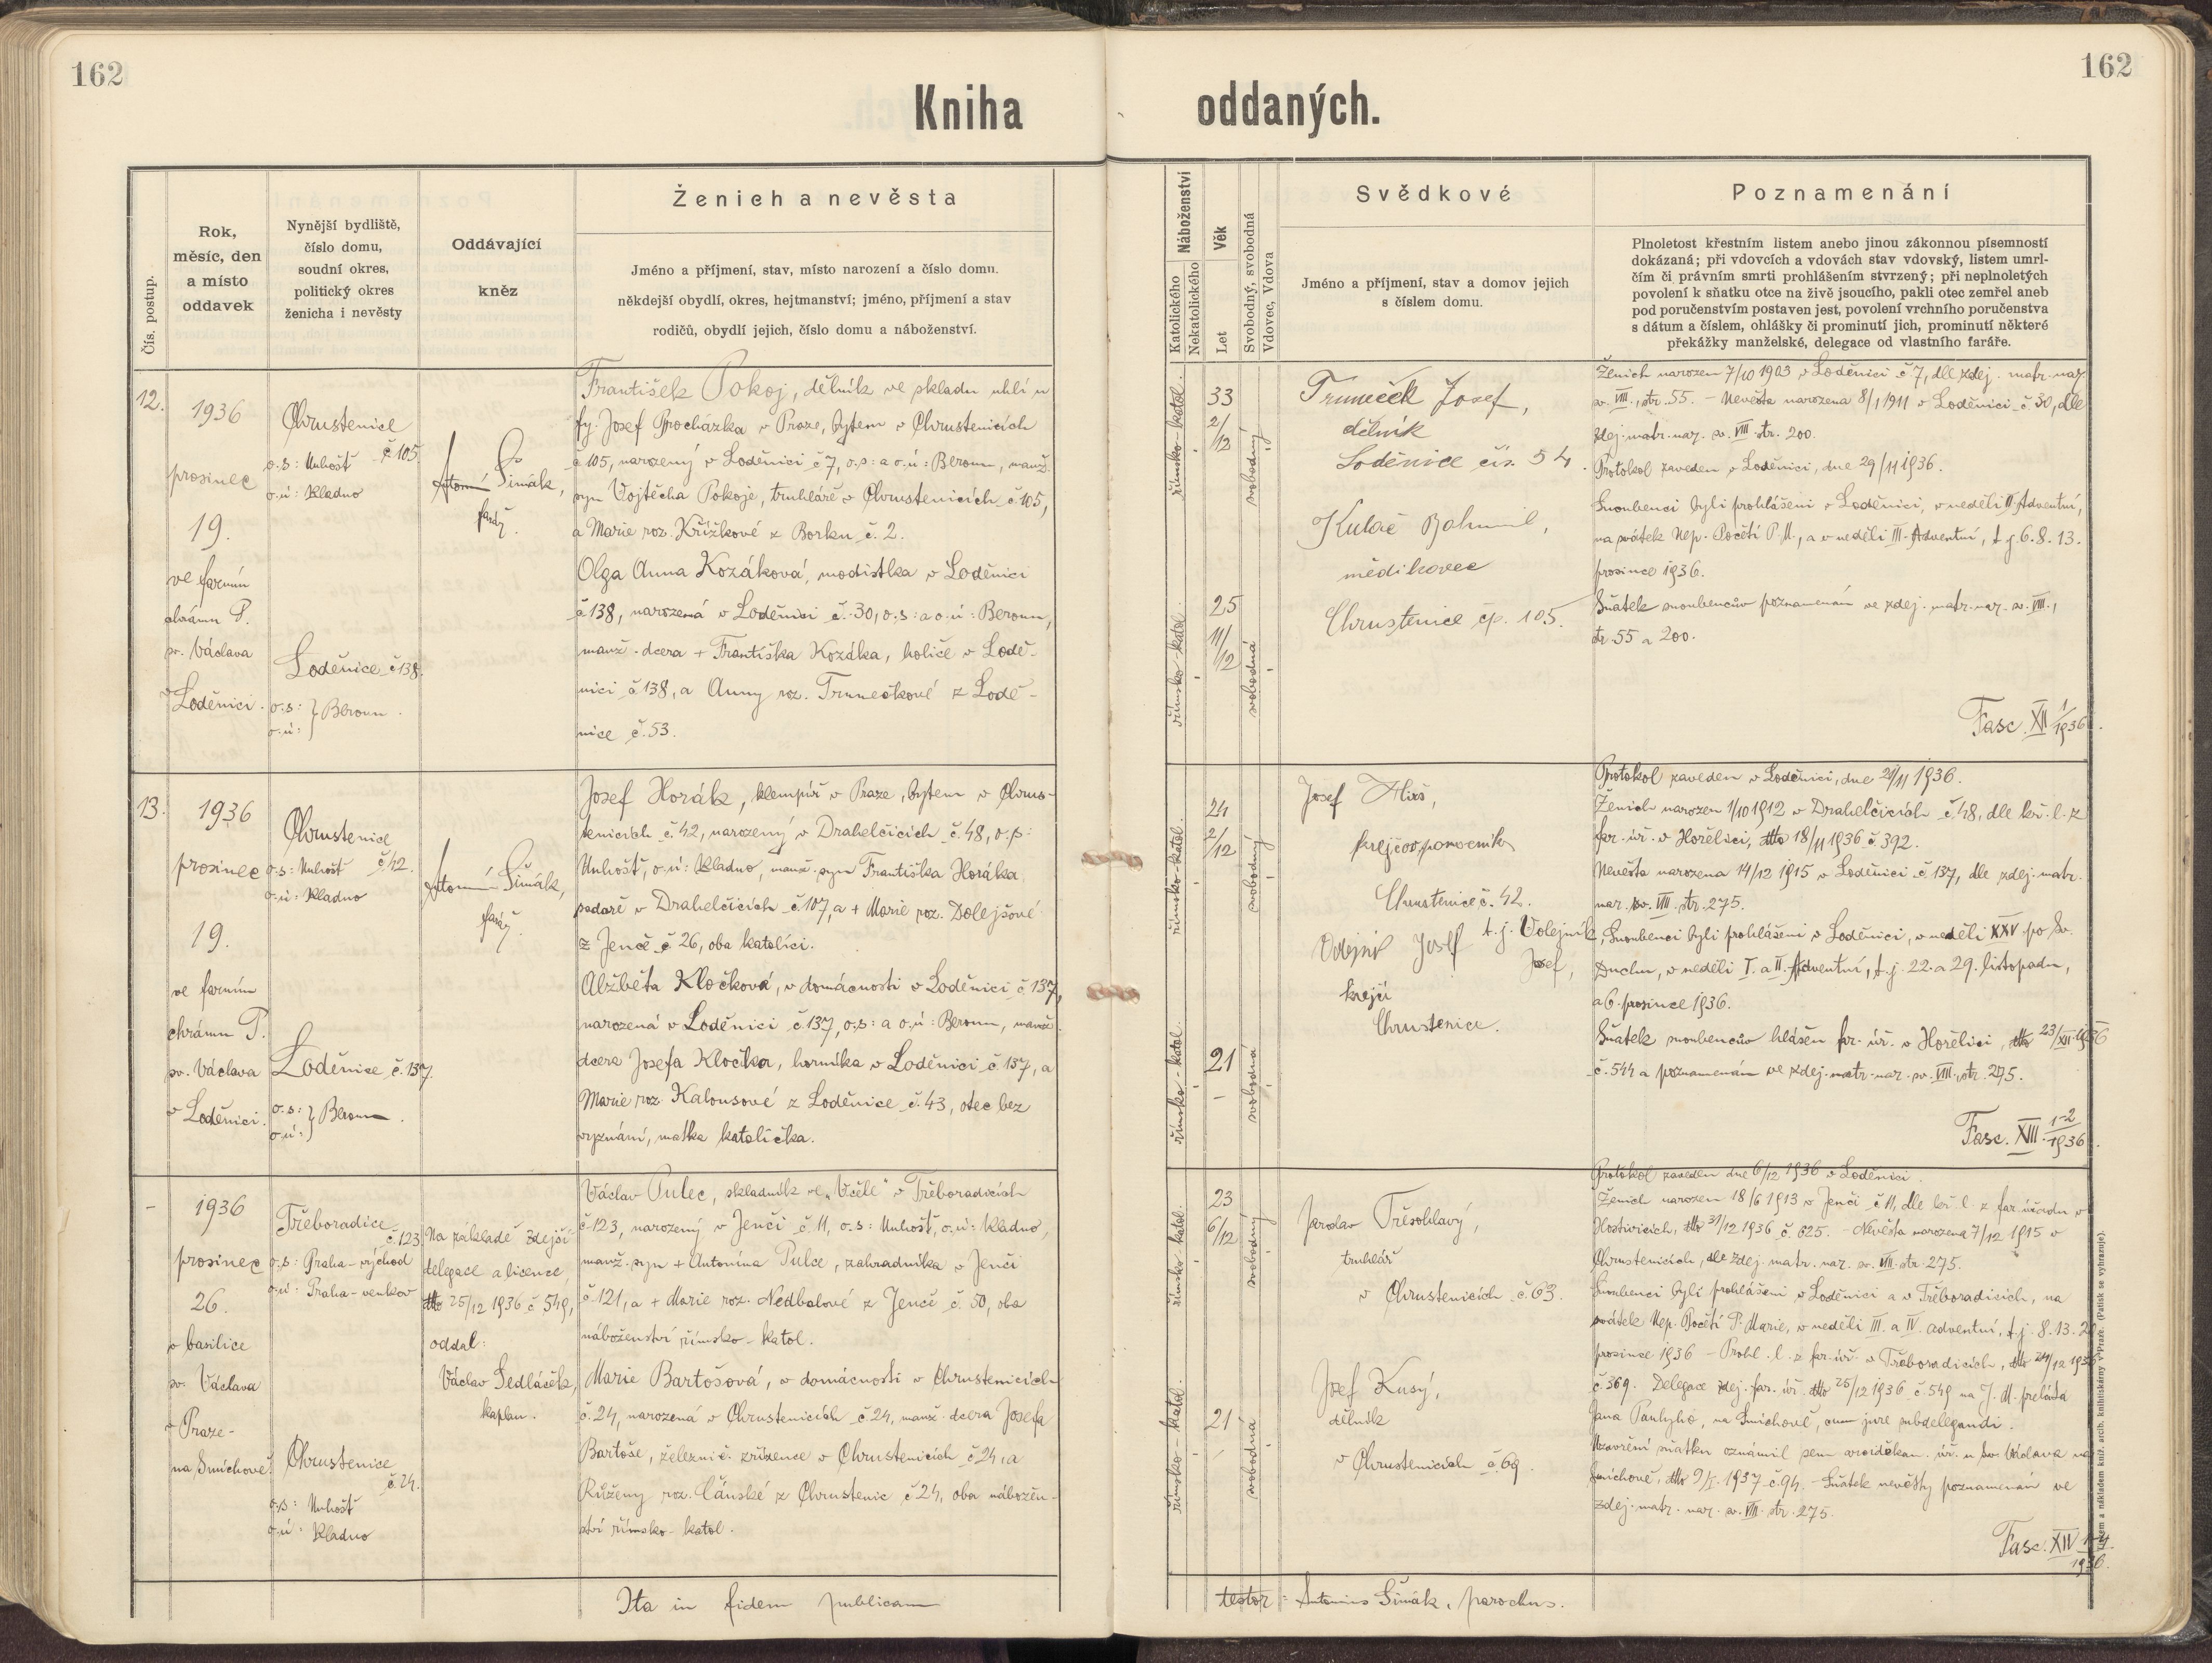 162
162
Kniha
oddaných.
Čís. postup.
Rok,
měsíc, den
a místo
oddavek
Nynější bydliště,
číslo domu,
soudní okres,
politický okres
ženicha i nevěsty
Oddávající
kněz
Ženich a nevěsta
Jméno a příjmení, stav, místo narození a číslo domu.
někdejší obydlí, okres, hejtmanství; jméno, příjmení a stav
rodičů, obydlí jejich, číslo domu a náboženství.
Náboženství
Katolického
Nekatolického
Věk
Let
Svobodný, svobodná
Vdovec, Vdova
Svědkové
Jméno a příjmení, stav a domov jejich
s číslem domu.
Poznamenání
Plnoletost křestním listem anebo jinou zákonnou písemností
dokázaná; při vdovcích a vdovách stav vdovský, listem umrl-
čím či právním smrti prohlášením stvrzený; při neplnoletých
povolení k sňatku otce na živě jsoucího, pakli otec zemřel aneb
pod poručenstvím postaven jest, povolení vrchního poručenstva
s dátum a číslem, ohlášky či prominutí jich, prominutí některé
překážky manželské, delegace od vlastního faráře.
12.
1936
prosinec
19.
ve farním
chrámu P.
sv. Václava
v Loděnici.
Chrustenice
č 105.
o.s: Unhošť
o.ú: Kladno
Loděnice č 138.
o.s: } Beroun.
o.ú:
Antonín Šimák,
farář.
František Pokoj, dělník ve skladu uhlí u
fy. Josef Procházka v Praze, bytem v Chrustenicích
č 105, narozený v Loděnici č 7, o.s: a o.ú: Beroun, manž.
syn Vojtěcha Pokoje, truhláře v Chrustenicích č 105,
a Marie roz. Křížkové z Borku č. 2.
Olga Anna Kozáková, modistka v Loděnici
č 138, narozená v Loděnici č. 30, o.s: a o.ú: Beroun,
manž. dcera + Františka Kozáka, holiče v Lodě-
nici č 138, a Anny roz. Trunečkové z Lodě-
nice č. 53.
římsko-katol.
33
2/12
svobodný
římsko-katol.
25
11/12
svobodná
Truneček Josef,
dělník
Loděnice čís. 54.
Kulač Bohumil,
mědikovec
Chrustenice čp. 105.
Ženich narozen 7/10 1903 v Loděnici č 7, dle zdej. matr. nar.
sv. VIII., str. 55. - Nevěsta narozena 8/1 1911 v Loděnici č 30, dle
zdej. matr. nar. sv. VIII. str. 200.
Protokol zaveden v Loděnici, dne 29/11 1936.
Snoubenci byli prohlášeni v Loděnici, v neděli II. Adventní,
na svátek Nep. Početí P. M., a v neděli III. Adventní, t.j. 6. 8. 13.
prosince 1936.
Sňatek snoubencův poznamenán ve zdej. matr. nar. sv. VIII.,
str. 55 a 200.
Fasc. XII 1/1936.
13.
1936
prosinec
19.
ve farním
chrámu P.
sv. Václava
v Loděnici.
Chrustenice
č 42.
o.s: Unhošť
o.ú: Kladno
Loděnice č. 137.
o.s: } Beroun.
o.ú:
Antonín Šimák,
farář.
Josef Horák, klempíř v Praze, bytem v Chrus-
tenicích č 42, narozený v Drahelčicích č. 48, o.s:
Unhošť, o.ú: Kladno, manž. syn Františka Horáka
sedaře v Drahelčicích č. 107, a + Marie roz. Dolejšové
z Jenče č 26, oba katolíci.
Alžběta Kločková, v domácnosti v Loděnici č 137,
narozená v Loděnici č 137, o.s: a o.ú: Beroun, manž.
dcera Josefa Kločka, horníka v Loděnici č 137, a
Marie roz. Kalousové z Loděnice č. 43, otec bez
vyznání, matka katolička.
římsko-katol.
24
2/12
svobodný
římsko-katol.
21
-
svobodná
Josef
krejčov. pomocník
Chrustenice č. 42.
Josef t.j. Volejník,
Josef,
krejčí
Chrustenice.
Protokol zaveden v Loděnici, dne 29/11 1936.
Ženich narozen 1/10 1912 v Drahelčicích č. 48, dle kř. l. z
far. úř. v Hořelici, dtto 18/11 1936 č 392.
Nevěsta narozena 14/12 1915 v Loděnici č 137, dle zdej. matr.
nar. sv. VIII. str. 275.
Snoubenci byli prohlášeni v Loděnici, v neděli XXV po Sv.
Duchu, v neděli I. a II. Adventní, t.j. 22. a 29. listopadu,
a 6. prosince 1936.
Sňatek snoubencův hlášen far. úř. v Hořelici, dtto 23/XII 1936
č. 544 a poznamenán ve zdej. matr. nar. sv. VIII., str. 275.
Fasc. XIII. 1-2/1936.
-
1936
prosinec
26.
v basilice
sv. Václava
v Praze-
na Smíchově.
Třeboradice
č. 123
o.s: Praha-východ
o.ú: Praha-venkov
Chrustenice
č. 24.
o.s: Unhošť
o.ú: Kladno
Na základě zdejší
delegace a licence
dtto 25/12 1936 č 549,
oddal:
Václav Sedláček,
kaplan.
Václav Pulec, skladník ve „Včele" v Třeboradicích
č 123, narozený v Jenči č. 11, o.s: Unhošť, o.ú: Kladno,
manž. syn + Antonína Pulce, zahradníka v Jenči
č 121, a + Marie roz. Nedbalové z Jenče č. 50, oba
náboženství římsko-katol.
Marie Bartošová, v domácnosti v Chrustenicích
č. 24, narozená v Chrustenicích č 24, manž. dcera Josefa
Bartoše, železnič. zřízence v Chrustenicích č 24, a
Růženy roz. Čánské z Chrustenic č 24, oba nábožen-
ství římsko-katol.
římsko katol.
23
6/12
svobodný
římsko-katol.
21
-
svobodná
Jaroslav Třesohlavý,
truhlář
v Chrustenicích č. 63.
Josef Kusý,
dělník
v Chrustenicích č. 69.
Protokol zaveden dne 6/12 1936 v Loděnici.
Ženich narozen 18/6 1913 v Jenči č 11, dle kř. l. z far. úřadu v
Hostivicích, dtto 31/12 1936 č. 625. - Nevěsta narozena 7/12 1915 v
Chrustenicích, dle zdej. matr. nar. sv. VIII. str. 275.
Snoubenci byli prohlášeni v Loděnici a v Třeboradicích, na
svátek Nep. Početí P. Marie, v neděli III. a IV. adventní, t.j. 8. 13. 20
prosince 1936 - Prohl. l. z far. úř. v Třeboradicích, dtto 24/12 1936
č. 369. Delegace zdej. far. úř. dtto 25/12 1936 č. 549 na J. M. preláta
Jana Paulyho, na Smíchově, cum jure subdelegandi.
Uzavření sňatku oznámil sem arciděkan. úř. u sv. Václava na
Smíchově, dtto 9/I. 1937 č. 94. - Sňatek nevěsty poznamenán ve
zdej. matr. nar. sv. VIII. str. 275.
Fasc. XIV 1-4/1936.
Ita in fidem publicam
testor: Antonius Šimák, parochus.
nákladem kniž. arcib. knihtiskárny v Praze. (Patisk se vyhrazuje).